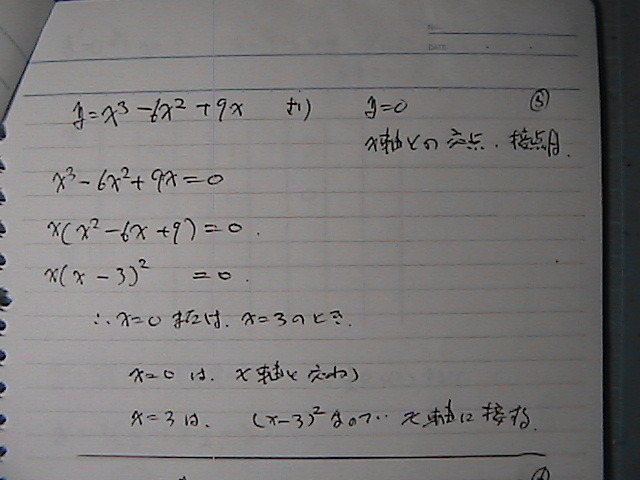 NO.
DATE
y=x³-6x²+9x より y=0 ③
x軸との交点、接点は、
x³-6x²+9x=0
x(x²-6x+9)=0.
x(x-3)² =0.
∴x=0 または、x=3のとき.
x=0 は、x軸と交わり
x=3は、(x-3)²なので x軸に接する.